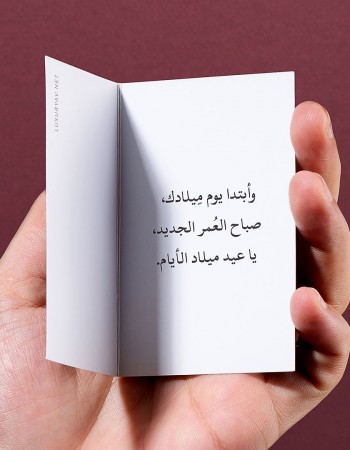 وأبتدا يوم مِيلادك،
صباح العُمر الجديد،
يا عيد ميلاد الأيام.